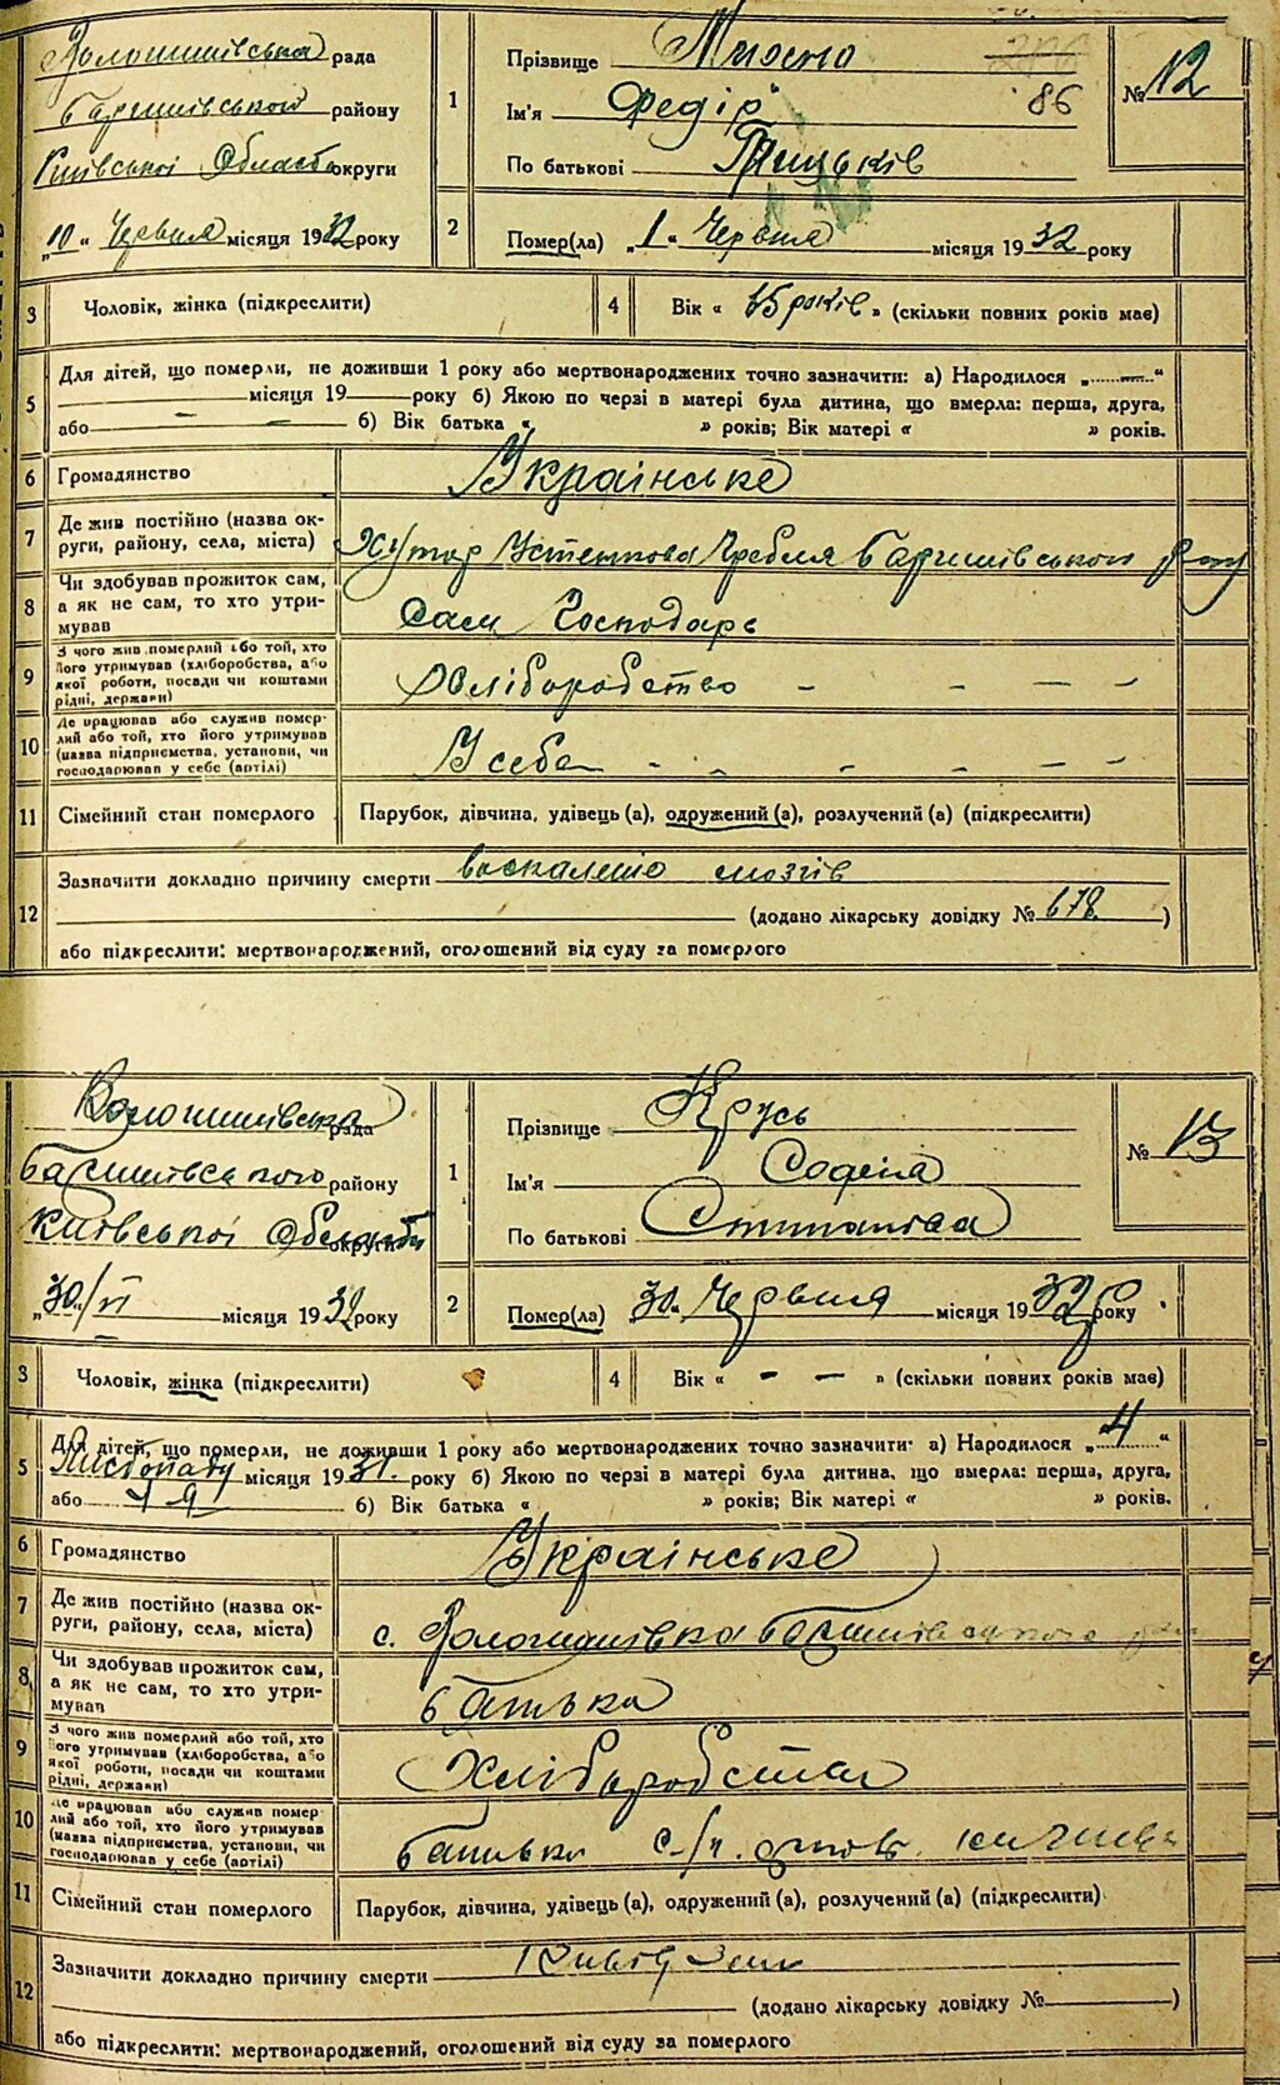 Волошинівська рада
Баришівського району
Київської Області округи
„10“ Червня місяця 1932 року
1
Прізвище
Ім'я Федір
86
По батькові Грицьків
№ 12
2
Помер(ла) „1“ Червня місяця 1932 року
3
Чоловік, жінка (підкреслити)
4
Вік « років » (скільки повних років має)
5
Для дітей, що померли, не доживши 1 року або мертвонароджених точно зазначити: а) Народилося „ — “
місяця 19 року б) Якою по черзі в матері була дитина, що вмерла: перша, друга,
або — б) Вік батька « » років; Вік матері « » років.
6
Громадянство
Українське
7
Де жив постійно (назва ок-
руги, району, села, міста)
Хутор Устенкова Гребля Баришівського р-ну
8
Чи здобував прожиток сам,
а як не сам, то хто утри-
мував
Сам Господарь
9
З чого жив померлий або той, хто
його утримував (хліборобства, або
якої роботи, посади чи коштами
рідні, держави)
Хліборобство - - - -
10
Де працював або служив помер-
лий або той, хто його утримував
(назва підприємства, установи, чи
господарював у себе (артілі)
У себе - - - - - -
11
Сімейний стан померлого
Парубок, дівчина, удівець (а), одружений (а), розлучений (а) (підкреслити)
12
Зазначити докладно причину смерти воскаление мозгів
(додано лікарську довідку № 678 )
або підкреслити: мертвонароджений, оголошений від суду за померлого
Волошинівська рада
Баришівського району
Київської Області округи
„30“/VI місяця 1932 року
1
Прізвище Крусь
Ім'я Софія
По батькові Степанівна
№ 13
2
Помер(ла) „30“ Червня місяця 1932 року
3
Чоловік, жінка (підкреслити)
4
Вік « - - » (скільки повних років має)
5
Для дітей, що померли, не доживши 1 року або мертвонароджених точно зазначити: а) Народилося „4“
Листопаду місяця 1931. року б) Якою по черзі в матері була дитина, що вмерла: перша, друга,
або б) Вік батька « » років; Вік матері « » років.
6
Громадянство
Українське
7
Де жив постійно (назва ок-
руги, району, села, міста)
с. Волошинівка Баришівського
8
Чи здобував прожиток сам,
а як не сам, то хто утри-
мував
батька
9
З чого жив померлий або той, хто
його утримував (хліборобства, або
якої роботи, посади чи коштами
рідні, держави)
Хліборобства
10
Де працював або служив помер-
лий або той, хто його утримував
(назва підприємства, установи, чи
господарював у себе (артілі)
батько с/г.
11
Сімейний стан померлого
Парубок, дівчина, удівець (а), одружений (а), розлучений (а) (підкреслити)
12
Зазначити докладно причину смерти
(додано лікарську довідку № )
або підкреслити: мертвонароджений, оголошений від суду за померлого